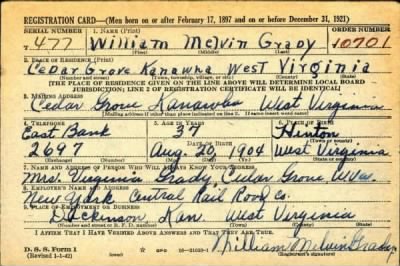 REGISTRATION CARD—(Men born on or after February 17, 1897 and on or before December 31, 1921)
SERIAL NUMBER 1. NAME (Print) ORDER NUMBER
477 William Melvin Grady 10701
(First) (Middle) (Last)
2. PLACE OF RESIDENCE (Print)
Cedar Grove Kanawha West Virginia
(Number and street) (Town, township, village, or city) (County) (State)
[THE PLACE OF RESIDENCE GIVEN ON THE LINE ABOVE WILL DETERMINE LOCAL BOARD
JURISDICTION; LINE 2 OF REGISTRATION CERTIFICATE WILL BE IDENTICAL]
3. MAILING ADDRESS
Cedar Grove Kanawha West Virginia
4. TELEPHONE 5. AGE IN YEARS 6. PLACE OF BIRTH
East Bank 37 Hinton
DATE OF BIRTH
2697 Aug. 26 1904 West Virginia
(Exchange) (Number) (Mo.) (Day) (Yr.) (State or country)
7. NAME AND ADDRESS OF PERSON WHO WILL ALWAYS KNOW YOUR ADDRESS
Mrs. Virginia Grady, Cedar Grove, W.Va.
8. EMPLOYER'S NAME AND ADDRESS
New York Central Rail Road Co.
9. PLACE OF EMPLOYMENT OR BUSINESS
Dickinson, Kan. West Virginia
(Number and street or R. F. D. number) (Town) (County) (State)
I AFFIRM THAT I HAVE VERIFIED ABOVE ANSWERS AND THAT THEY ARE TRUE.
D. S. S. Form 1
(Revised 1-1-42) GPO 16—21630-1 William Melvin Grady
(Registrant's signature)